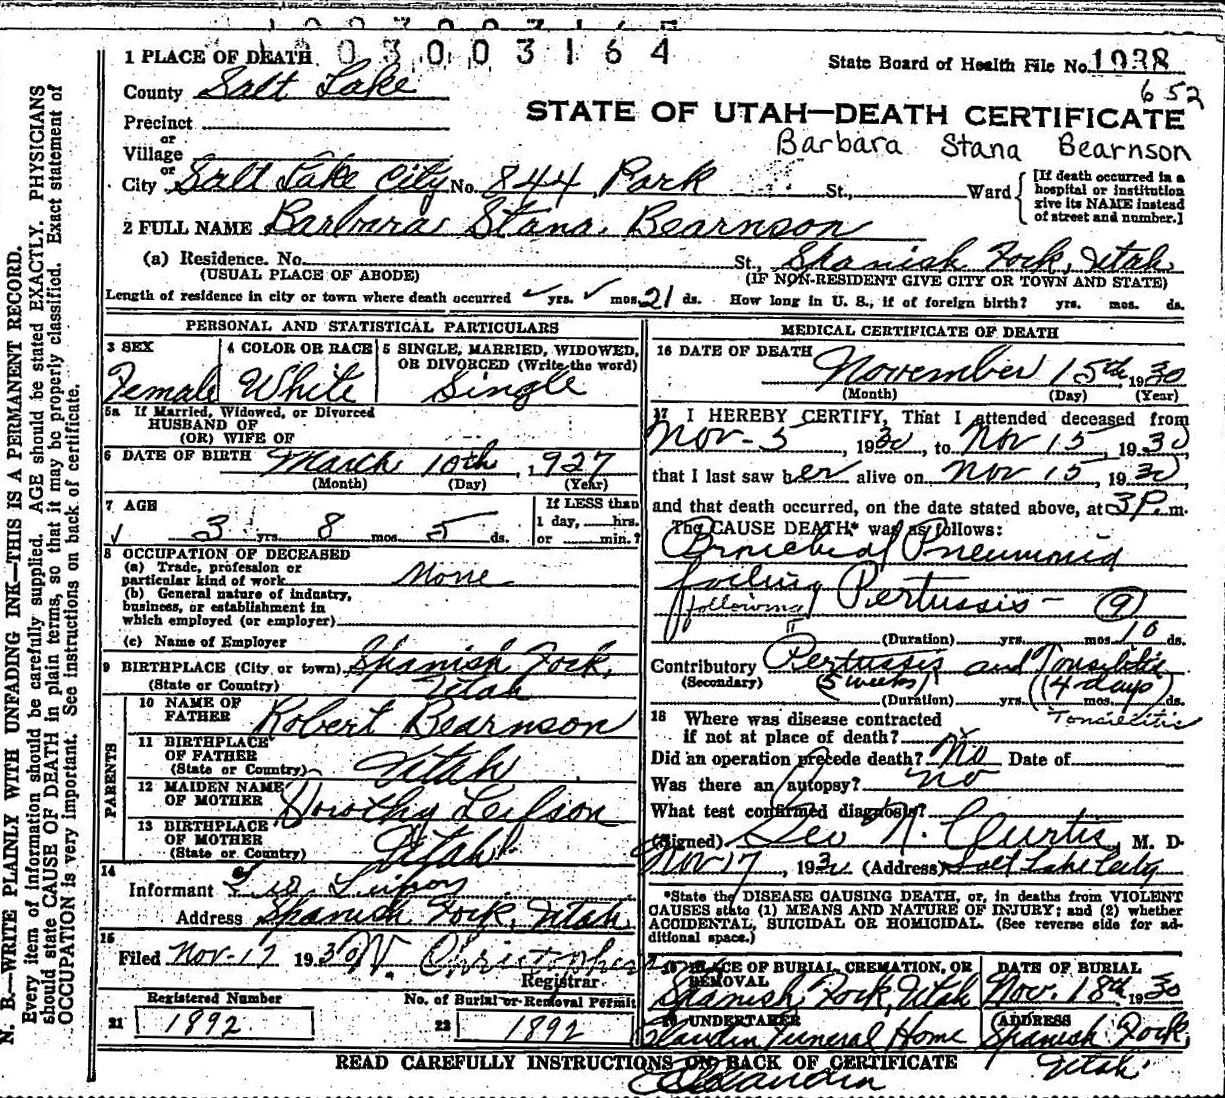 1003003164
1 PLACE OF DEATH
State Board of Health File No. 1938
652
County Salt Lake
STATE OF UTAH—DEATH CERTIFICATE
Precinct
or
Village
Barbara Stana Bearnson
or
City Salt Lake City No. 844 Park St., Ward
[If death occurred in a
hospital or institution
give its NAME instead
of street and number.]
2 FULL NAME Barbara Stana Bearnson
(a) Residence. No. St., Spanish Fork, Utah
(USUAL PLACE OF ABODE) (IF NON-RESIDENT GIVE CITY OR TOWN AND STATE)
Length of residence in city or town where death occurred ✓ yrs. ✓ mos. 21 ds. How long in U. S., if of foreign birth? yrs. mos. ds.
PERSONAL AND STATISTICAL PARTICULARS
3 SEX 4 COLOR OR RACE 5 SINGLE, MARRIED, WIDOWED,
OR DIVORCED (Write the word)
Female White Single
5a If Married, Widowed, or Divorced
HUSBAND OF
(OR) WIFE OF
6 DATE OF BIRTH March 10th, 1927
(Month) (Day) (Year)
7 AGE If LESS than
1 day, hrs.
3 yrs. 8 mos. 5 ds. or min.?
8 OCCUPATION OF DECEASED
(a) Trade, profession or
particular kind of work None
(b) General nature of industry,
business, or establishment in
which employed (or employer)
(c) Name of Employer
9 BIRTHPLACE (City or town) Spanish Fork,
(State or Country) Utah
PARENTS
10 NAME OF
FATHER Robert Bearnson
11 BIRTHPLACE
OF FATHER
(State or Country) Utah
12 MAIDEN NAME
OF MOTHER Dorothy Leifson
13 BIRTHPLACE
OF MOTHER
(State or Country) Utah
14
Informant Leo Leifson
Address Spanish Fork, Utah
15
Filed Nov-17 1930 N. Christopherson
Registrar
Registered Number No. of Burial or Removal Permit
21 1892 22 1892
MEDICAL CERTIFICATE OF DEATH
16 DATE OF DEATH
November 15th, 1930
(Month) (Day) (Year)
17 I HEREBY CERTIFY, That I attended deceased from
Nov-5, 1930, to Nov 15, 1930,
that I last saw her alive on Nov 15, 1930,
and that death occurred, on the date stated above, at 3 P. m.
The CAUSE DEATH* was as follows:
Broncheal Pneumonia
foeling Pertussis — (9)
following
(Duration) yrs. mos. 10 ds.
Contributory Pertussis and Tonsylitis
(Secondary) (5 weeks) (4 days)
(Duration) yrs. mos. ds.
18 Where was disease contracted Toncielitis
if not at place of death?
Did an operation precede death? No Date of
Was there an autopsy? no
What test confirmed diagnosis?
(Signed) Geo N. Curtis, M. D.
Nov 17, 1930 (Address) Salt Lake City
*State the DISEASE CAUSING DEATH, or, in deaths from VIOLENT
CAUSES state (1) MEANS AND NATURE OF INJURY; and (2) whether
ACCIDENTAL, SUICIDAL OR HOMICIDAL. (See reverse side for ad-
ditional space.)
19 PLACE OF BURIAL, CREMATION, OR
REMOVAL
DATE OF BURIAL
Spanish Fork, Utah Nov. 18th 1930
UNDERTAKER ADDRESS
Claudin Funeral Home Spanish Fork,
Utah
READ CAREFULLY INSTRUCTIONS ON BACK OF CERTIFICATE
N. B.—WRITE PLAINLY WITH UNFADING INK—THIS IS A PERMANENT RECORD.
Every item of information should be carefully supplied. AGE should be stated EXACTLY. PHYSICIANS
should state CAUSE OF DEATH in plain terms, so that it may be properly classified. Exact statement of
OCCUPATION is very important. See instructions on back of certificate.